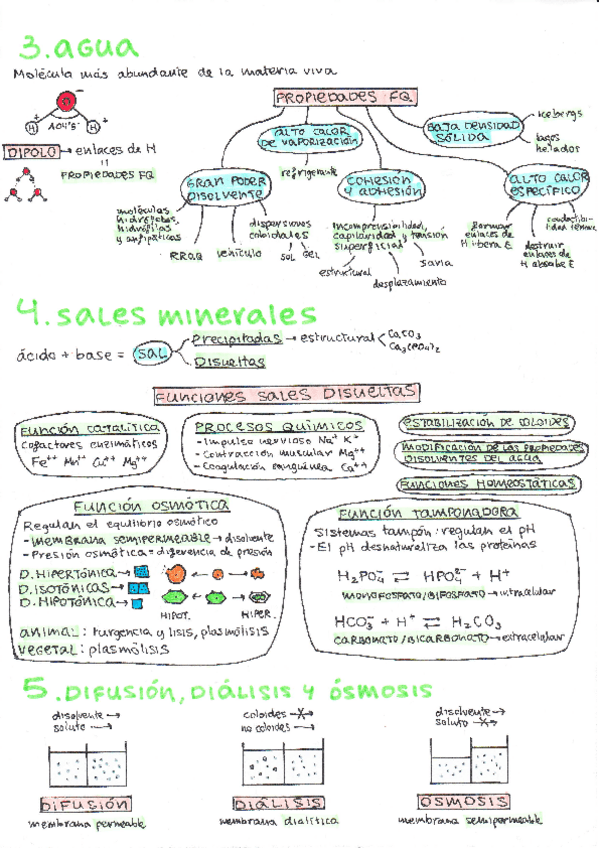 3. AGUA
Molécula más abundante de la materia viva
H
O
H
104'5º
DIPOLO → enlaces de H
PROPIEDADES FQ
PROPIEDADES FQ.
GRAN PODER
DISOLVENTE
moléculas
hidrófobas,
hidrófilas
y anfipáticas
RRQQ
vehículo
dispersiones
coloidales
SOL
GEL
ALTO CALOR
DE VAPORIZACIÓN
refrigerante
COHESIÓN
Y ADHESIÓN
incomprensibilidad,
capilaridad y tensión
superficial
estructural
desplazamiento
savia
BAJA DENSIDAD
SÓLIDA
icebergs
lagos
helados
ALTO CALOR
ESPECÍFICO
formar
enlaces de
H libera E
destruir
enlaces de
H absorbe E
conductibi-
lidad térmica
4. SALES MINERALES
ácido + base = SAL
Precipitadas → estructural
CaCO3
Ca3(PO4)2
Disueltas
FUNCIONES SALES DISUELTAS
FUNCIÓN CATALÍTICA
Cofactores enzimáticos
Fe++ Mn++ Cu++ Mg++
PROCESOS QUÍMICOS
- Impulso nervioso Na+ K+
- Contracción muscular Mg++
- Coagulación sanguínea Ca++
ESTABILIZACIÓN DE COLOIDES
MODIFICACIÓN DE LAS PROPIEDADES
DISOLVENTES DEL AGUA
FUNCIONES HOMEOSTÁTICAS
FUNCIÓN OSMÓTICA
Regulan el equilibrio osmótico
- MEMBRANA SEMIPERMEABLE → disolvente
- Presión osmótica = diferencia de presión
D. HIPERTÓNICA →
D. ISOTÓNICAS →
D. HIPOTÓNICA →
HIPOT.
HIPER.
ANIMAL: turgencia y lisis, plasmólisis
VEGETAL: plasmólisis
FUNCIÓN TAMPONADORA
Sistemas tampón: regulan el pH
- El pH desnaturaliza las proteínas
H2PO4- ⇄ HPO4= + H+
MONOFOSFATO/BIFOSFATO → intracelular
HCO3- + H+ ⇄ H2CO3
CARBONATO/BICARBONATO → extracelular
5. DIFUSIÓN, DIÁLISIS Y ÓSMOSIS
disolvente →
soluto →
DIFUSIÓN
membrana permeable
coloides -x→
no coloides →
DIÁLISIS
membrana dialítica
disolvente →
soluto -x→
ÓSMOSIS
membrana semipermeable